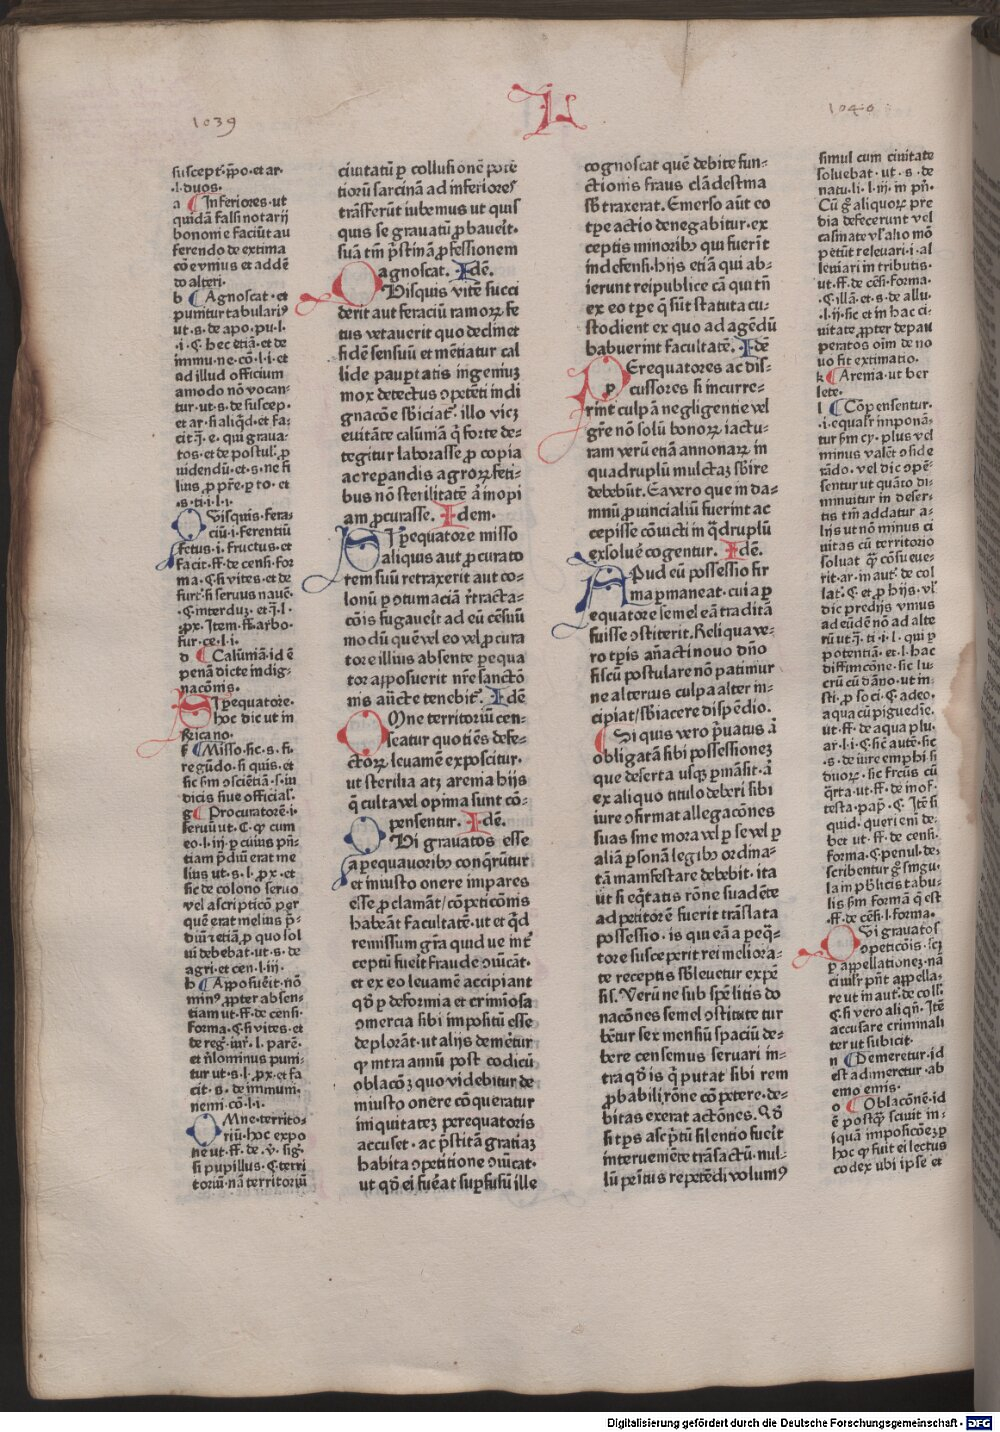 1039
L
1040
suscept. p̄po. et ar.
.l. duos.
a ¶ Inferiores. ut
quidā falsi notarij
bononie faciūt au
ferendo de extima
cōe vnius et addē
do alteri.
b ¶ Agnoscat. et
punitur tabulariꝰ
ut. s. de apo. pu. l.
.i. C. hec etiā. et de
immu. ne. cō. l. i. et
ad illud officium
amodo nō vocan-
tur. ut. s. de suscep.
et ar. si aliqd. et fa-
cit
tos. et de postul. ꝓ
uidendū. et. s. ne fi
lius, ꝓ pr̄e. ꝑ to. et
.s. ti. i. l. i.
Quisquis. fera-
ciū. i. ferentiū
fetus. i. fructus. et
facit. ff. de censi. for
ma. C. si vites. et de
furt. si seruus nauē.
.ꝓx. Item. ff. arbo.
fur. ce. l. i.
d ¶ Calūmiā. id ē
penā dicte indig-
nacōnis.
Si ꝑequatore.
hoc dic ut in
fricano.
f ¶ Misso. sic. s. fi.
re gūdo. si quis. et
sic ẜm ɔsciētiā. s. in
dicis siue official.
g ¶ Procuratorē. i.
seruū ut. C. qꝫ cum
eo. l. iij. ꝑ cuius pn̄-
tiam p̄diū erat me
lius ut. s. l. ꝓx. et
sic de colono seruo
vel ascripticō ꝑ qr
quē erat melius p̄-
diū ꝛ etiā, ꝑ quo sol
ui debebat. ut. s. de
agri. et cen. l. iij.
h ¶ Apposuēit. nō
minꝰ, ꝓpter absen-
tiam ut. ff. de censi.
forma. C. si vites. et
et n̄lominus puni-
tur ut. s. l. ꝓx. et fa
cit. s. de immuni.
nemi. cō. l. i.
OMne territo-
riū. hoc expo
ne ut. ff. de. v. sig.
si pupillus. C. terri
toriū. nā territoriū
ciuitatū ꝑ collusionē potē
tiorū sarcinā ad inferiores
trāsferūt iubemus ut quis
quis se grauatū ꝓbauerit.
suā tm̄ p̄stinā ꝓfessionem
agnoscat. Idē.
QVisquis vitē succi
derit aut feraciū ramoꝝ fe
tus vetauerit quo declinet
fidē sensuū et mētiatur cal
lide paupertatis ingeniuꝫ
mox detectus ɔpetēti indi
gnacōe sb̄iciat̄. illo vicꝫ
euitāte calūmiā q̄ forte de-
tegitur laborasse, ꝓ copia
ac repandis agroꝝ feti-
bus nō sterilitatē ā inopi
am ꝓcurasse. Idem.
SI ꝑequatore misso
aliquis aut ꝓcurato
rem suū retraxerit aut co-
lonū ꝑ ɔtumaciā r̄tracta-
cōis fugauelt ad eū cēsiuū
modū quē vel eo vel ꝓcura
tore illius absente ꝑequa
tor apposuerit nr̄e sanctō
nis auc̄te tenebit̄. Idē
OMne territoriū cen-
seatur quotiēs defe-
ctoꝝ leuamē expositur.
ut sterilia atꝫ arenia hijs
q̄ culta vel opima sunt cō-
pensentur. Idē.
QVi grauatos esse
a ꝑequatoribꝫ conq̄rūtur
et iniusto onere impares
esse, ꝓclamāt / cōpeticōnis
habeāt facultatē. ut et qd
remissum gr̄a quid ue int̄
ceptū fueit fraude ɔuicāt.
et ex eo leuamē accipiant
qd̄ ꝑ deformia et crimiosa
ɔmercia sibi impositū esse
deplorāt. ut alijs demetur
qꝫ intra annū post codicū
oblacōꝫ quo videbitur de
iniusto onere cōqueratur
iniquitateꝫ perequatoris
accuset. ac p̄stitā gratiaꝫ
habita ɔpetitione ɔuicat.
ut qd̄ ei fueat suꝑfusū ille
cognoscat quē debite fun-
ctionis fraus clādestina
sb̄traxerat. Emerso aūt eo
tꝑe actio denegabitur. ex
ceptis minoribꝫ qui fuerīt
indefensi. hijs etiā qui ab-
ierunt reipublice cā qui tn̄
ex eo tꝑe q̄ sūt statuta cu-
stodient ex quo ad agēdū
habuerint facultatē. Idē
PErequatores ac dis-
cussores si incurre-
rint culpā negligentie vel
gr̄e nō solū bonoꝝ iactu-
ram verū etiā annonaꝝ in
quadruplū mulctaꝫ sb̄ire
debebūt. Ea vero que in da-
mnū, ꝓuincialiū fuerint ac
cepisse cōuicti in q̄druplū
exsoluē cogentur. Idē.
APud eū possessio fir
ma ꝑmaneat. cui a ꝑ
equatore semel eā traditā
fuisse ɔstiterit. Reliqua ve-
ro tꝑis an̄acti nouo dn̄o
fiscū postulare nō patimur
ne alterius culpa alter in-
cipiat / sb̄iacere dispēdio.
¶ Si quis vero p̄uatus ā
obligatā sibi possessioneꝫ
que deserta usqꝫ ꝑmāsit. ā
ex aliquo titulo deberi sibi
iure ɔfirmat allegacōnes
suas sine mora vel ꝑ se vel ꝑ
aliā ꝑsonā legibꝫ ordina-
tā manifestare debebit. ita
ut si eq̄tatis rōne suadēte
ad petitorē fuerit trāslata
possessio. is qui eā a ꝑeq̄-
tore susceperit rei meliora-
te receptis sb̄leuetur expē
sis. Verū ne sub spē litis do
nacōnes semel ɔstitute tur
bētur sex mensiū spaciū de-
bere censemus seruari in-
tra qd̄ is q̄ putat sibi rem
ꝓbabili, rōne cōpetere. de-
bitas exerat actōnes. Qd̄
si tꝑs ascp̄tū silentio fueīt
interuemēte trāsactū. nul-
lū pe̅itus repetēdi volumꝰ
simul cum ciuitate
soluebat. ut. s. de
natu. li. l. iij. in pn̄.
Cū g̊ aliquoꝝ pre
dia defecerunt vel
casinate vl̄ alio mō
petūt releuari. i. al
leuiari in tributis.
ut. ff. de cēsi. forma.
C. illā. et. s. de allu.
.l. ij. sic et in hac ci-
uitate, ꝓpter depau
peratos oīm de no
uo fit extimatio.
k ¶ Arema. ut ber
lete.
l ¶ Cōpensentur.
.i. equalr̄ imponā-
tur ẜm cy. plus vel
minus valēt ɔside
rādo. vel dic ɔpē-
sentur ut quāto di-
minuitur in deser-
tis tm̄ addatur a-
lijs ut nō minus ci
uitas cū territorio
soluat q̄ cōsueue-
rit. ar. in aut. de col
lat. C. et ꝓ hijs. vl̄
dic predijs vnius
ad eūdē nō ad alte
rū ut q̄. ti. i. l. qui ꝑ
potentiā. et l. hac
diffinicōne. sic lu-
crū cū dāno. ut in-
sti. ꝓ soci. C. adeo.
aqua cū piguedīe.
ut. ff. de aqua plu.
ar. l. i. C. hc̄ autē. sic
.s. de iure emphi si
duoꝝ. sic frc̄us cū
q̄rta ut. ff. de inof.
testa. pap. C. Itē si
quid. queri eni de-
bet ut. ff. de censi.
forma. C. penul. de-
scribentur g̊ singu-
la in pb̄licis tabu-
lis ẜm formā q̄ est
.ff. de cēsi. l. forma.
QVi grauatos
ɔpeticōis. sꝫ
ꝑ appellationeꝫ. nā
ciuilr̄ pn̄t appella-
re ut in aut. de coll.
C. si vero aliqn̄. Itē
accusare criminali
ter ut subicit.
n ¶ Demeretur. id
est adimeretur. ab
emo emis.
o ¶ Oblacōnē. id
ē postꝙ sciuit in-
iquā imposicōeꝫ ꝑ
hoc qꝫ fuit ei lectus
codex ubi ipse et
Digitalisierung gefördert durch die Deutsche Forschungsgemeinschaft - DFG